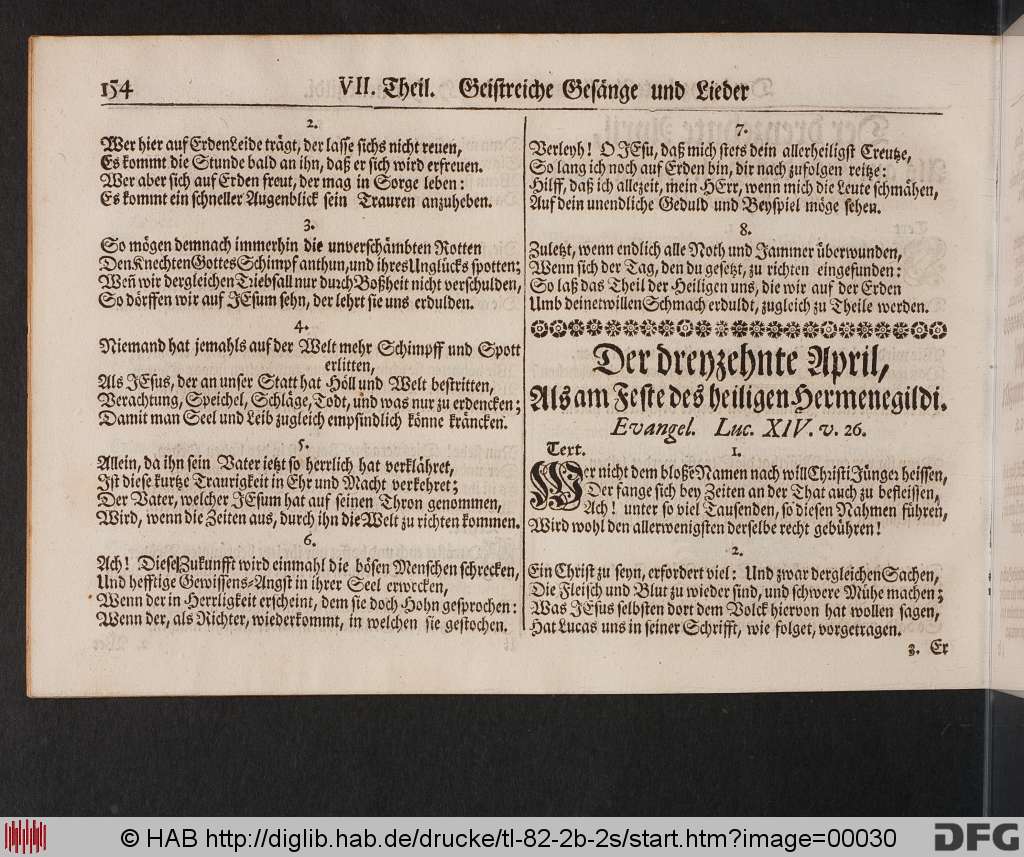 154 VII. Theil. Geistreiche Gesänge und Lieder
2.
Wer hier auf Erden Leide trägt, der lasse sichs nicht reuen,
Es kommt die Stunde bald an ihn, daß er sich wird erfreuen.
Wer aber sich auf Erden freut, der mag in Sorge leben:
Es kommt ein schneller Augenblick sein Trauren anzuheben.
3.
So mögen demnach immerhin die unverschämbten Rotten
Den Knechten Gottes Schimpf anthun, und ihres Unglücks spotten;
Weñ wir dergleichen Triebsall nur durch Boßheit nicht verschulden,
So dörffen wir auf JEsum sehn, der lehrt sie uns erdulden.
4.
Niemand hat jemahls auf der Welt mehr Schimpff und Spott
erlitten,
Als JEsus, der an unser Statt hat Höll und Welt bestritten,
Verachtung, Speichel, Schläge, Todt, und was nur zu erdencken;
Damit man Seel und Leib zugleich empfindlich könne kräncken.
5.
Allein, da ihn sein Vater jetzt so herrlich hat verklähret,
Ist diese kurtze Traurigkeit in Ehr und Macht verkehret;
Der Vater, welcher JEsum hat auf seinen Thron genommen,
Wird, wenn die Zeiten aus, durch ihn die Welt zu richten kommen.
6.
Ach! Diese Zukunfft wird einmahl die bösen Menschen schrecken,
Und hefftige Gewissens-Angst in ihrer Seel erwecken,
Wenn der in Herrligkeit erscheint, dem sie doch Hohn gesprochen:
Wenn der, als Richter, wiederkommt, in welchen sie gestochen.
7.
Verleyh! O JEsu, daß mich stets dein allerheiligst Creutze,
So lang ich noch auf Erden bin, dir nach zufolgen reitze:
Hilff, daß ich allezeit, mein HErr, wenn mich die Leute schmähen,
Auf dein unendliche Geduld und Beyspiel möge sehen.
8.
Zuletzt, wenn endlich alle Noth und Jammer überwunden,
Wenn sich der Tag, den du gesetzt, zu richten eingefunden:
So laß das Theil der Heiligen uns, die wir auf der Erden
Umb deinetwillen Schmach erduldt, zugleich zu Theile werden.
Der dreyzehnte April,
Als am Feste des heiligen Hermenegildi.
Evangel. Luc. XIV. v. 26.
Text. 1.
Wer nicht dem bloßē Namen nach will Christi Jünger heissen,
Der fange sich bey Zeiten an der That auch zu befleissen,
Ach! unter so viel Tausenden, so diesen Nahmen führen,
Wird wohl den allerwenigsten derselbe recht gebühren!
2.
Ein Christ zu seyn, erfordert viel: Und zwar dergleichen Sachen,
Die Fleisch und Blut zu wieder sind, und schwere Mühe machen;
Was JEsus selbsten dort dem Volck hiervon hat wollen sagen,
Hat Lucas uns in seiner Schrifft, wie folget, vorgetragen.
3. Er
© HAB http://diglib.hab.de/drucke/tl-82-2b-2s/start.htm?image=00030
DFG